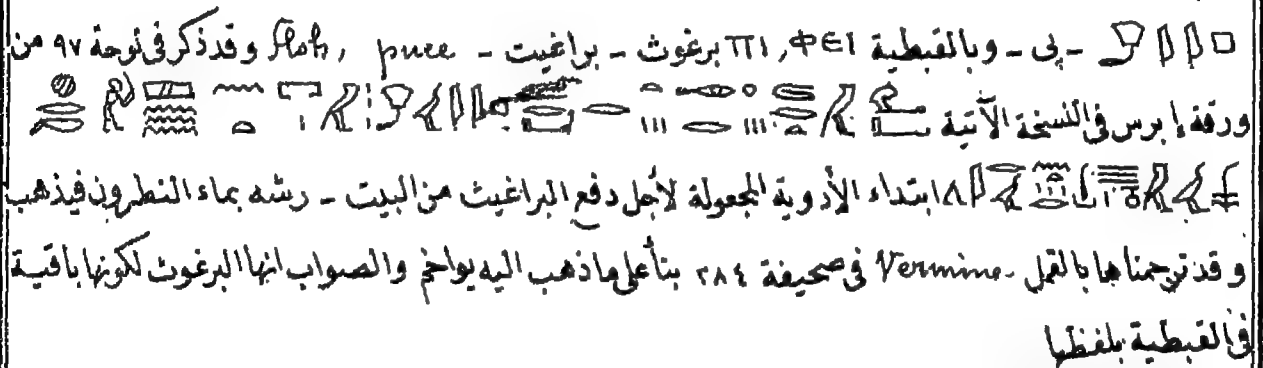 - پى - وبالقبطية ⲫⲉⲓ , ⲡⲓ برغوث - براغيت - puce , Floh وقد ذكر فى لوحة ٩٧ من
ورقة إبرس فى النسخة الآتية
ابتداء الأدوية المجعولة لأجل دفع البراغيث من البيت - رشه بماء النطرون فيذهب
وقد ترجمناها بالقمل - Vermine فى صحيفة ٢٨٤ بنأ على ما ذهب اليه يواخم والصواب انها البرغوث لكونها باقية
فى القبطية بلفظها